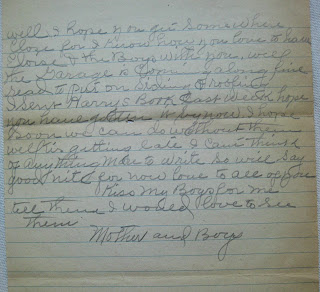 will I hope you get somewhere
close for I know how you love to have
Louse & the Boys with you, well
the Garage is coming along fine
read to put on siding & roofing
I sent Harrys Book Last week hope
you have gotten it by now I hope
soon we can do without them
well its getting late I cant think
of anything more to write so will say
good nite for now love to all of you
Kiss My Boys for me
tell them I would love to see
them
Mother and Boys